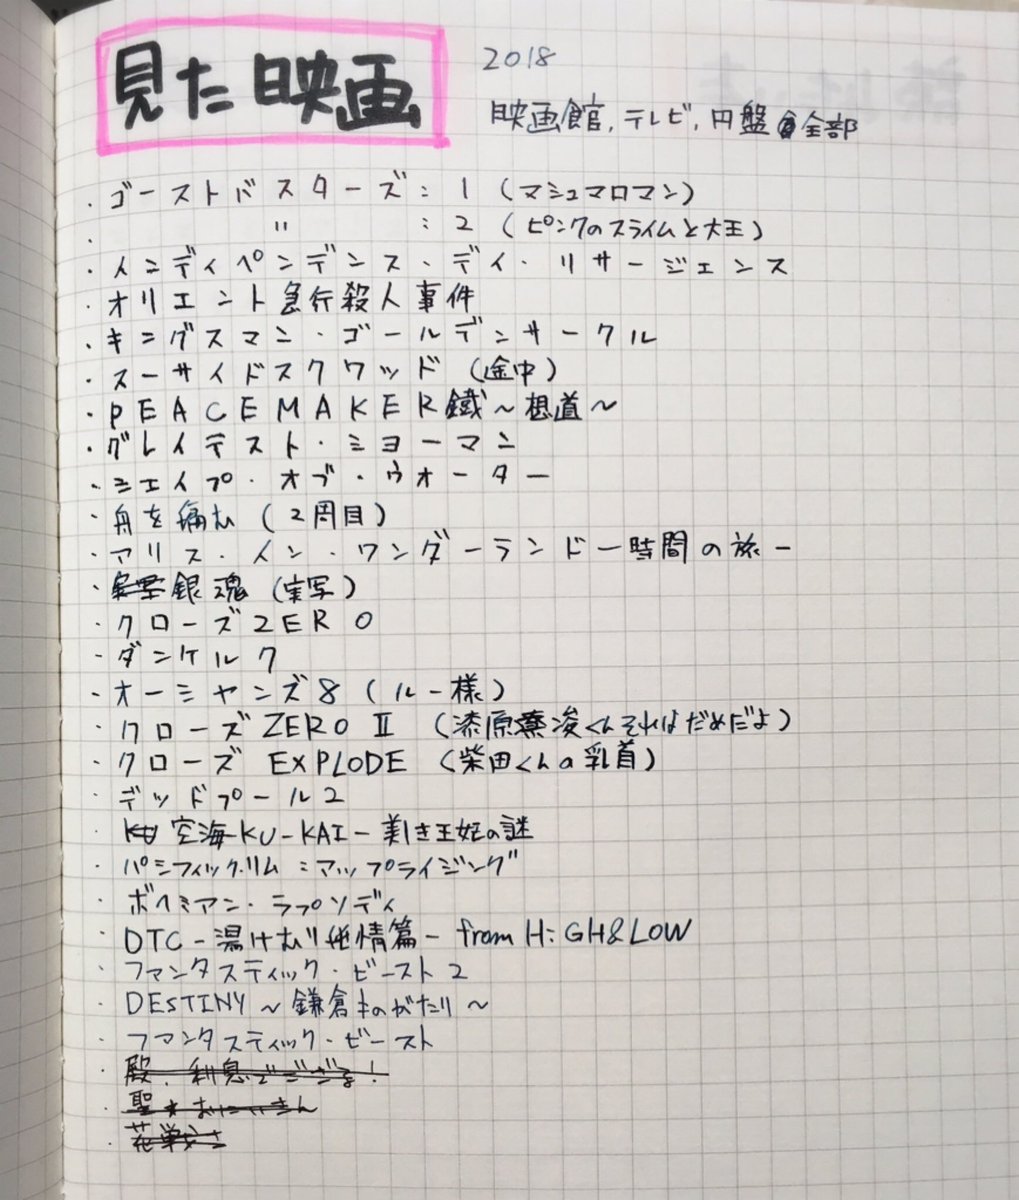 見た映画
2018
映画館,テレビ,円盤全部
・ゴーストバスターズ:1(マシュマロマン)
・〃:2(ピンクのスライムと大王)
・インディペンデンス・デイ・リサージェンス
・オリエント急行殺人事件
・キングスマン・ゴールデンサークル
・スーサイドスクワッド(途中)
・PEACEMAKER鐵〜想道〜
・グレイテスト・ショーマン
・シェイプ・オブ・ウォーター
・舟を編む(2回目)
・アリス・イン・ワンダーランドー時間の旅ー
・銀魂(実写)
・クローズZERO
・ダンケルク
・オーシャンズ8(ルー様)
・クローズZEROⅡ(漆原凌くんそれはだめだよ)
・クローズEXPLODE(柴田くんの乳首)
・デッドプール2
・空海-KU-KAI-美しき王妃の謎
・パシフィック・リム:アップライジング
・ボヘミアン・ラプソディ
・DTC-湯けむり純情篇-from HiGH&LOW
・ファンタスティック・ビースト2
・DESTINY〜鎌倉ものがたり〜
・ファンタスティック・ビースト
・殿、利息でござる!
・聖★おにいさん
・花戦さ